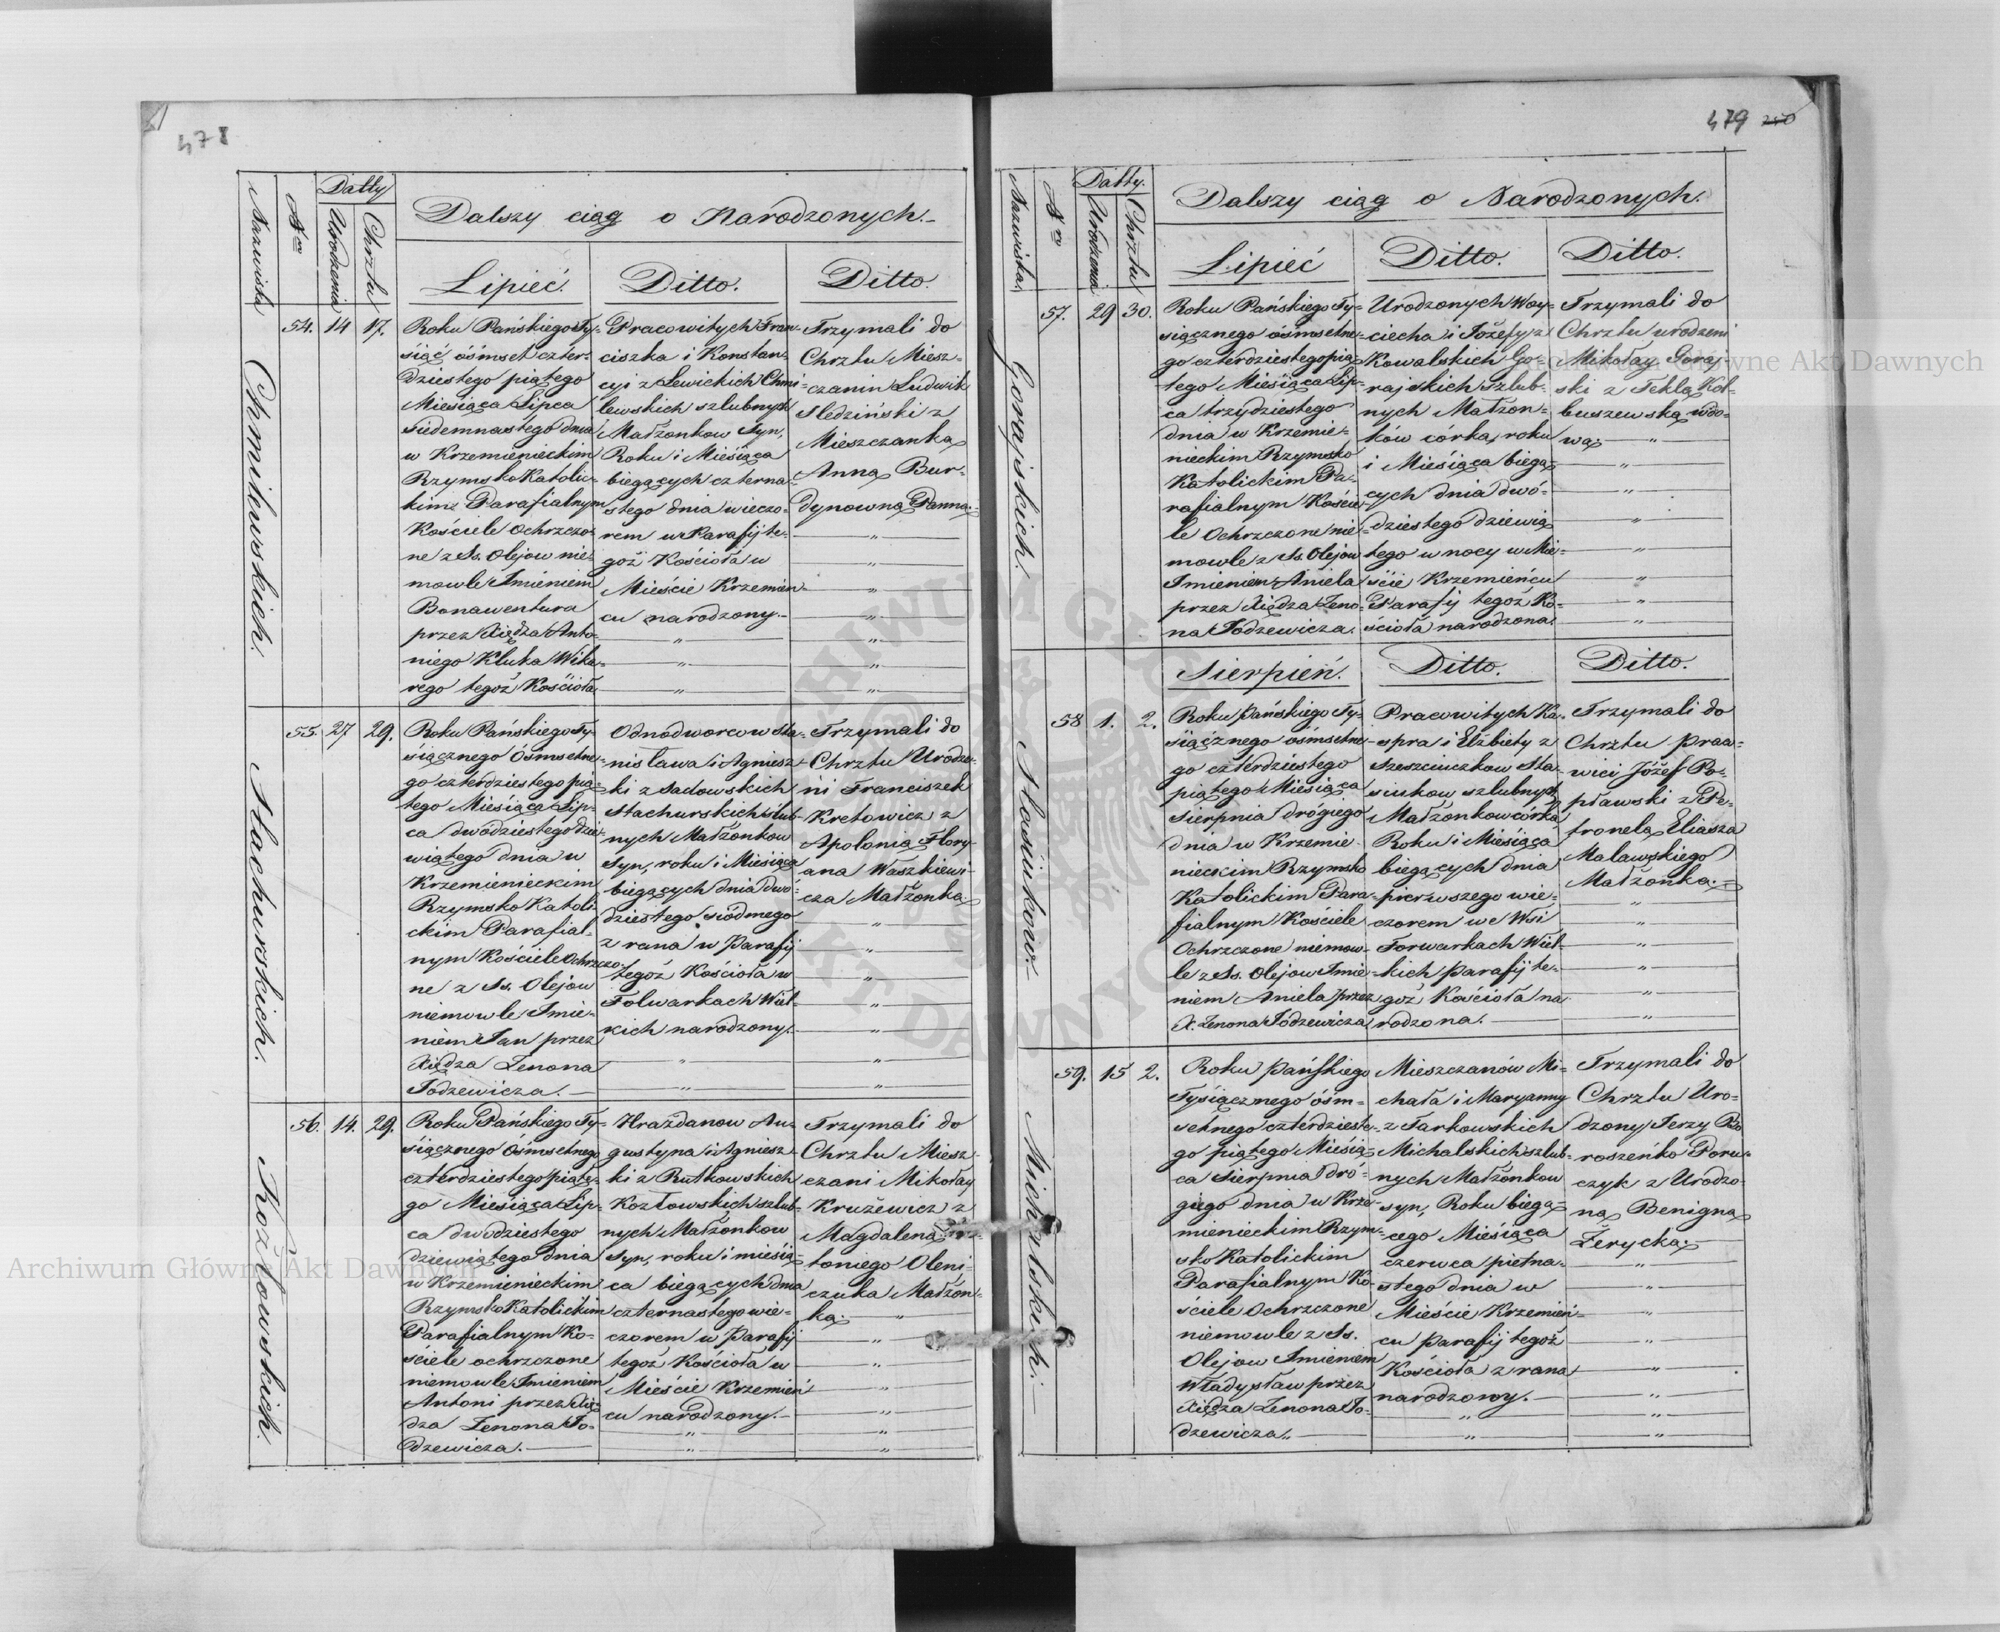 478
Nazwiska
N ro
Datty
Urodzenia
Chrztu
Dalszy ciąg o Narodzonych.
Lipiéć.
Ditto.
Ditto.
Chmilewskich.
54. 14 17.
Roku Pańskiego Ty-
siąć óśmset czter-
dziestego piątego
Miesiąca Lipca
siedemnastego dnia
w Krzemienieckim
Rzymsko Katolic-
kim Parafialnym
Kościele Ochrzczo-
ne z Ss. Olejow nie-
mowle Imieniem
Bonawentura
przez Xiędza Anto-
niego Kluka Wika-
rego tegoż Kościoła
Pracowitych Fran-
ciszka i Konstan-
cyi z Lewickich Chmi-
lewskich szlubnych
Małżonkow Syn,
Roku i Miesiąca
biegących czterna-
stego dnia wieczo-
rem w Parafij te-
goż Kościoła w
Mieście Krzemień-
cu narodzony.
Trzymali do
Chrztu Miesz-
czanin Ludwik
Sledziński z
Mieszczanką
Anną Bur-
dynowną Panną.
Stachurskich.
55. 27 29.
Roku Pańskiego Ty-
siącznego Ósmsetne-
go czterdziestego pią-
tego Miesiąca Lip-
ca dwódziestego dzie-
wiątego dnia w
Krzemienieckim
Rzymsko Katoli-
ckim Parafial-
nym Kościele Ochrzczo-
ne z Ss. Olejow
niemowle Imie-
niem Jan przez
Xiędza Zenona
Jodzewicza.
Odnodworcow Sta-
nisława i Agniesz-
ki z Sadowskich
Stachurskich szlub-
nych Małżonkow
Syn, roku i Miesiąca
biegących dnia dwó-
dziestego siódmego
z rana w Parafij
tegoż Kościoła w
Folwarkach Wiel-
kich narodzony.
Trzymali do
Chrztu Urodze-
ni Franciszek
Kretowicz z
Apolonią Flory-
ana Waszkiewi-
cza Małżonką
Kozłowskich.
56. 14. 29.
Roku Pańskiego Ty-
siącznego Ósmsetnego
czterdziestego piąte-
go Miesiąca Lip-
ca dwudziestego
dziewiątego dnia
w Krzemienieckim
Rzymsko Katolickim
Parafialnym Ko-
ściele ochrzczone
niemowle Imieniem
Antoni przez Xię-
dza Zenona Jo-
dzewicza.
Hrażdanow Au-
gustyna i Agniesz-
ki z Rutkowskich
Kozłowskich szlub-
nych Małżonkow
Syn, roku i miesią-
ca biegących dnia
czternastego wie-
czorem w Parafij
tegoż Kościoła w
Mieście Krzemień
cu narodzony.
Trzymali do
Chrztu Miesz-
czani Mikołay
Krużewicz z
Magdaleną
toniego Oleni-
czuka Małżon-
ką
479 240
Nazwiska
N ro
Datty.
Urodzenia
Chrztu
Dalszy ciąg o Narodzonych.
Lipiéć
Ditto.
Ditto.
Gorajskich.
57. 29 30.
Roku Pańskiego Ty-
siącznego óśmsetne-
go czterdziestego pią-
tego Miesiąca Lip-
ca trzydziestego
dnia w Krzemie-
nieckim Rzymsko
Katolickim Pa-
rafialnym Koście-
le Ochrzczone nie-
mowle z Ss. Olejow
Imieniem Aniela
przez Xiędza Zeno-
na Jodzewicza.
Urodzonych Woy-
ciecha i Jożefy z
Kowalskich Go-
rajskich szlub-
nych Małżon-
ków córka, roku
i Miesiąca biegą-
cych dnia dwó-
dziestego dziewią-
tego w nocy w Mie-
ście Krzemieńcu
Parafij tegoż Ko-
ścioła narodzona.
Trzymali do
Chrztu urodzeni
Mikołay Goraj-
ski z Teklą Koł-
buszewską wdo-
wą
Sierpień.
Ditto.
Ditto.
Stasiukow
58 1. 2.
Roku Pańskiego Ty-
siącznego ośmsetne-
go czterdziestego
piątego Miesiąca
Sierpnia drógiego
dnia w Krzemie-
nieckim Rzymsko
Katolickim Para-
fialnym Kościele
Ochrzczone niemow-
le z Ss. Olejow Imie-
niem Aniela przez
X. Zenona Jodzewicza
Pracowitych Ka-
spra i Elżbiety z
Szeszciuczkow Sta-
siukow szlubnych
Małżonkow córka
Roku i Miesiąca
biegących dnia
pierwszego wie-
czorem we Wsi
Forwarkach Wiel-
kich Parafij te-
goż Kościoła na
rodzona.
Trzymali do
Chrztu Praco-
wici Józéf Po-
pławski z Pe-
tronelą Eliasza
Malawskiego
Małżonką.
Michalskich.
59. 15 2.
Roku Pańskiego
Tysiącznego ośm-
setnego czterdzieste-
go piątego Miesią-
ca Sierpnia dró-
giego dnia w Krze-
mienieckim Rzym-
sko Katolickim
Parafialnym Ko-
ściele Ochrzczone
niemowle z Ss.
Olejow Imieniem
Władysław przez
Xiędza Zenona Jo-
dzewicza.
Mieszczanów Mi-
chała i Maryanny
z Tarkowskich
Michalskich szlub-
nych Małżonkow
syn, Roku biegą-
cego Miesiąca
czerwca piętna-
stego dnia w
Mieście Krzemień-
cu Parafij tegoż
Kościoła z rana
narodzony.
Trzymali do
Chrztu Uro-
dzony Jerzy Ko-
roszeńko Poru-
czyk z Urodzo-
ną Benigną
Żerycką.
Archiwum Główne Akt Dawnych
Archiwum Główne Akt Dawnych